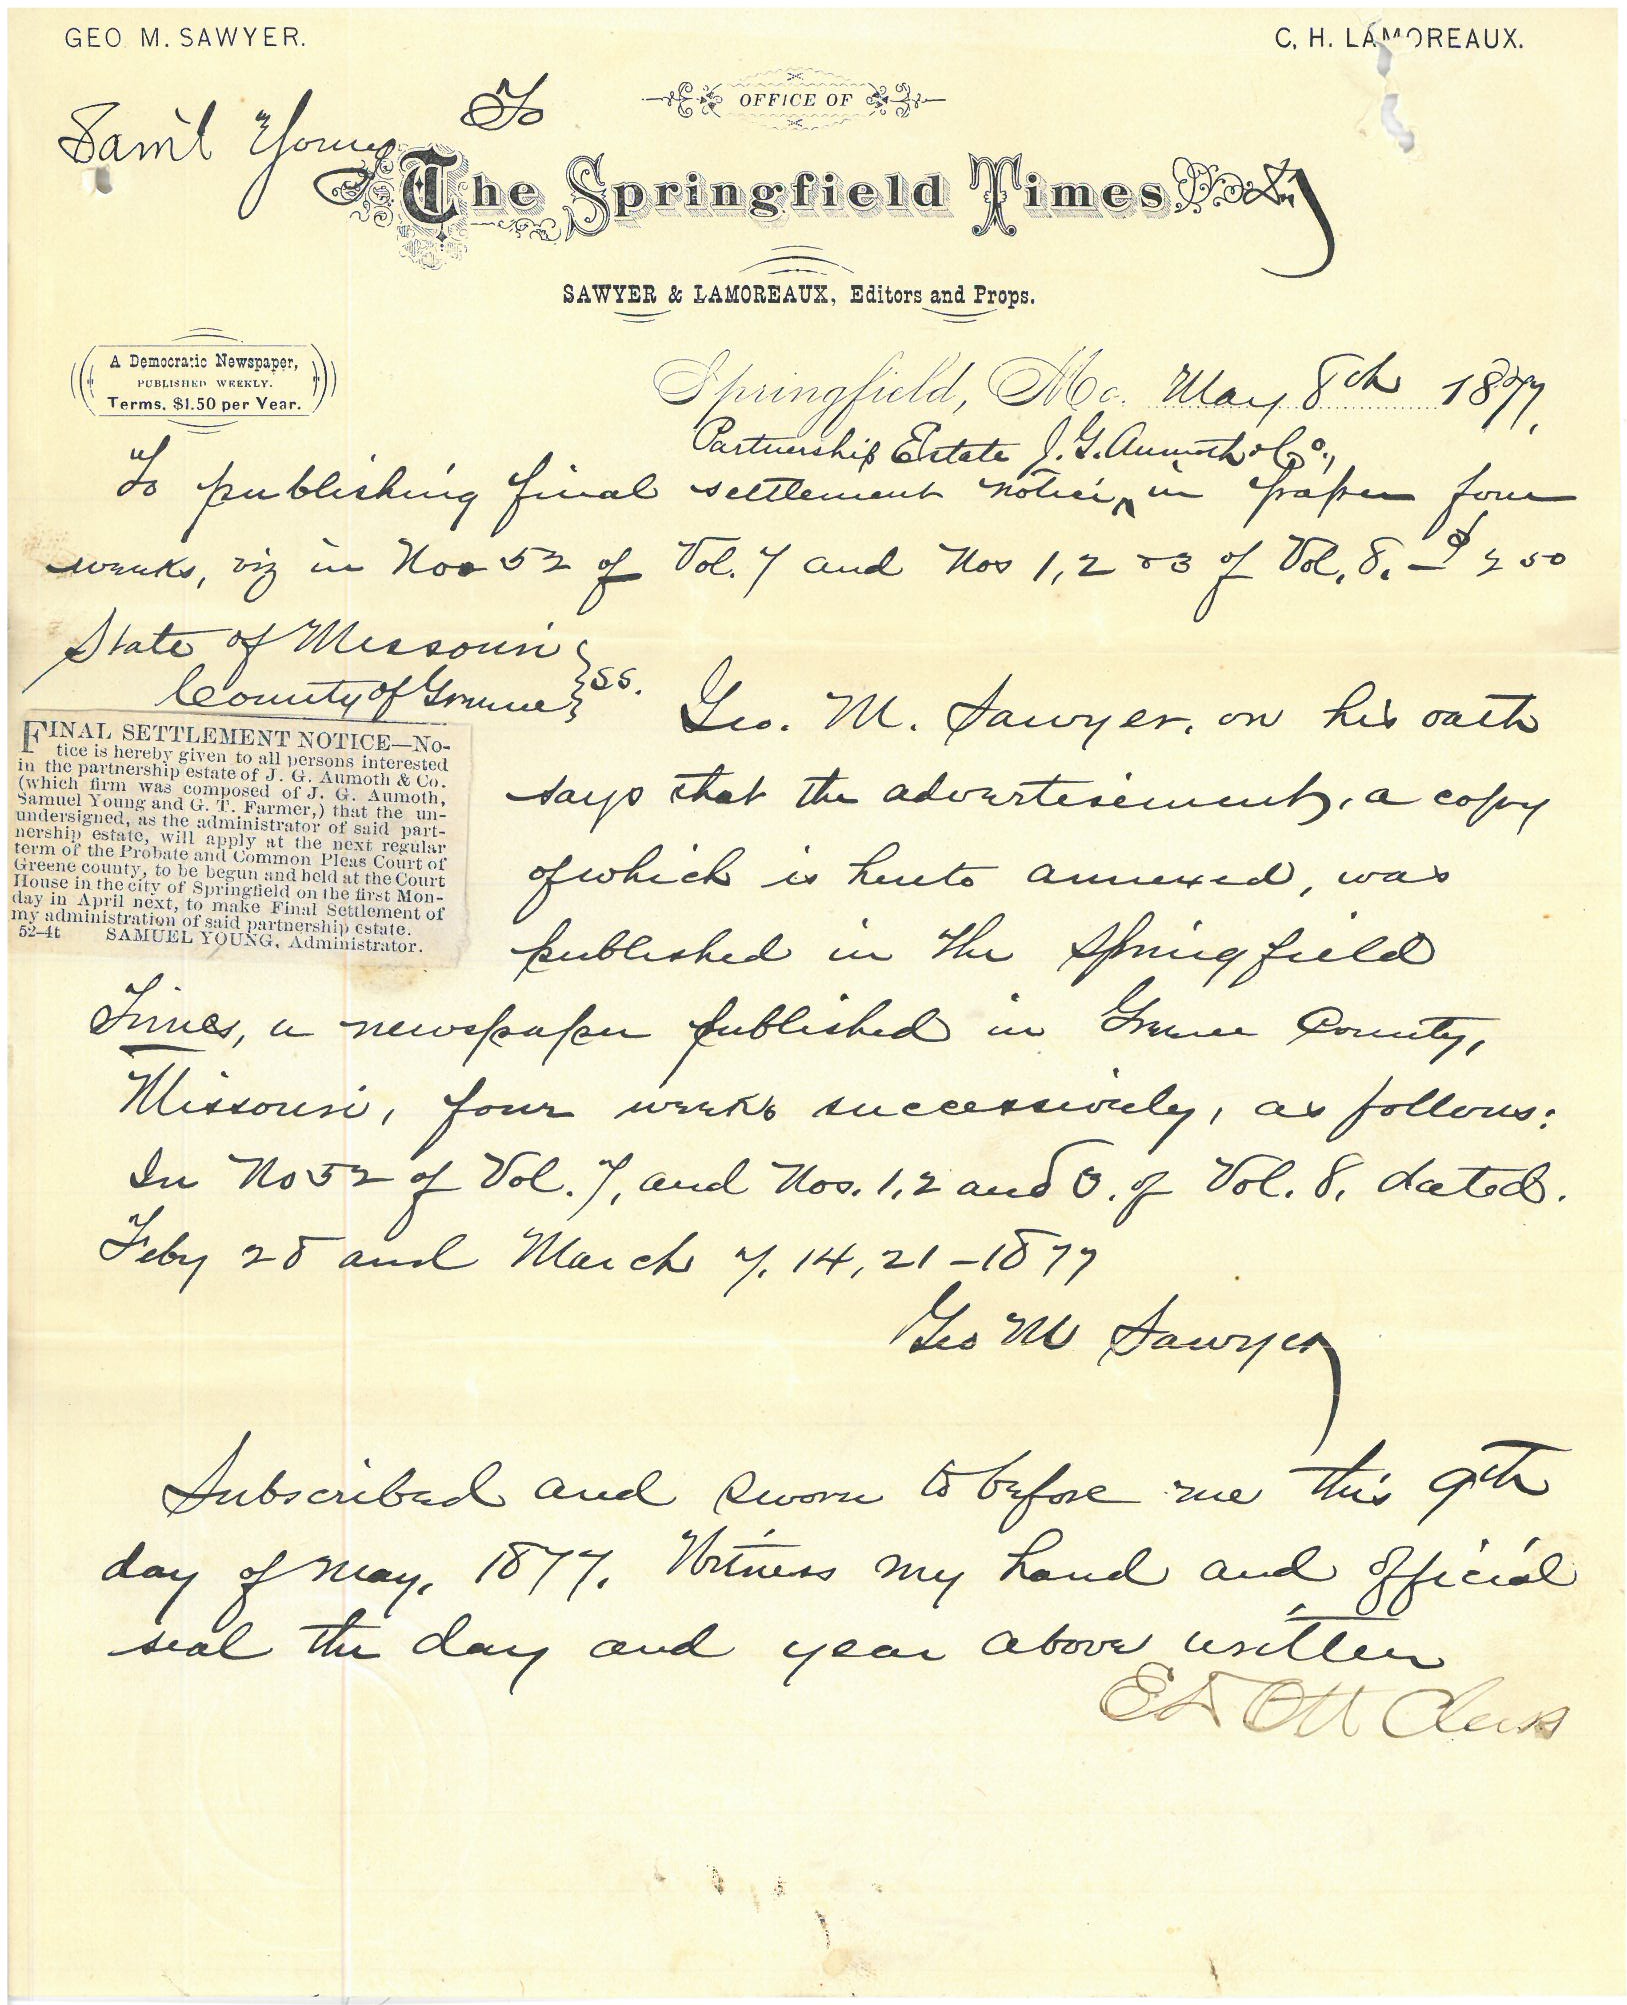 GEO M. SAWYER.
C. H. LAMOREAUX.
OFFICE OF
Sam'l Young To
The Springfield Times Dr.
SAWYER & LAMOREAUX, Editors and Props.
A Democratic Newspaper,
PUBLISHED WEEKLY.
Terms, $1.50 per Year.
Springfield, Mo. May 8th 1877.
Partnership Estate J. G. Aumoth & Co.,
To publishing final settlement notice, ^ in paper four
weeks, viz in Nos 52 of Vol. 7 and Nos 1, 2 & 3 of Vol. 8. — $ 7 50
State of Missouri
County of Greene } ss.
FINAL SETTLEMENT NOTICE—No-
tice is hereby given to all persons interested
in the partnership estate of J. G. Aumoth & Co.
(which firm was composed of J. G. Aumoth,
Samuel Young and G. T. Farmer,) that the un-
undersigned, as the administrator of said part-
nership estate, will apply at the next regular
term of the Probate and Common Pleas Court of
Greene county, to be begun and held at the Court
House in the city of Springfield on the first Mon-
day in April next, to make Final Settlement of
my administration of said partnership estate.
52-4t SAMUEL YOUNG, Administrator.
Geo. M. Sawyer, on his oath
says that the advertisement, a copy
of which is hereto annexed, was
published in The Springfield
Times, a newspaper published in Greene County,
Missouri, four weeks successively, as follows:
In No 52 of Vol. 7, and Nos. 1, 2 and 3, of Vol. 8, dated.
Feby 28 and March 7, 14, 21 – 1877
Geo M Sawyer
Subscribed and sworn to before me this 9th
day of May, 1877. Witness my hand and official
seal the day and year above written
Ott Clerk